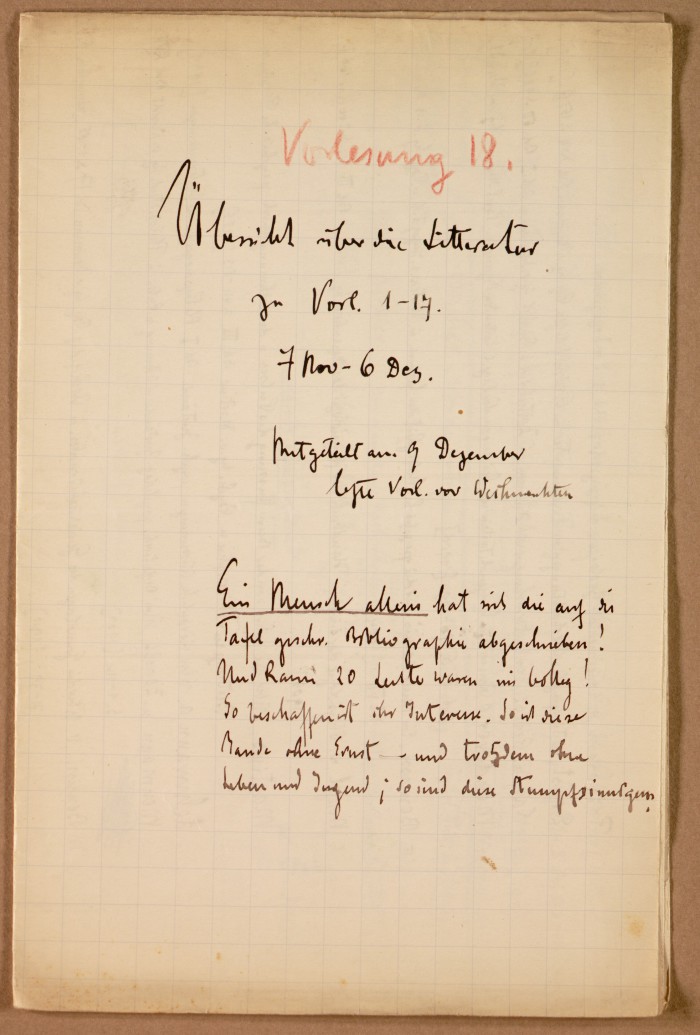 Vorlesung 18.
Übersicht über die Litteratur
zu Vorl. 1-17.
7 Nov - 6 Dez.
Mitgeteilt am 9 Dezember
letzte Vorl. vor Weihnachten
Ein Mensch allein hat sich die auf die
Tafel geschr. Bibliographie abgeschrieben!
Und kaum 20 Leute waren im Kolleg!
So beschaffen ist ihr Interesse. So ist diese
Bande ohne Ernst - und trotzdem ohne
Leben und Jugend; so sind diese Stumpfsinnigen.